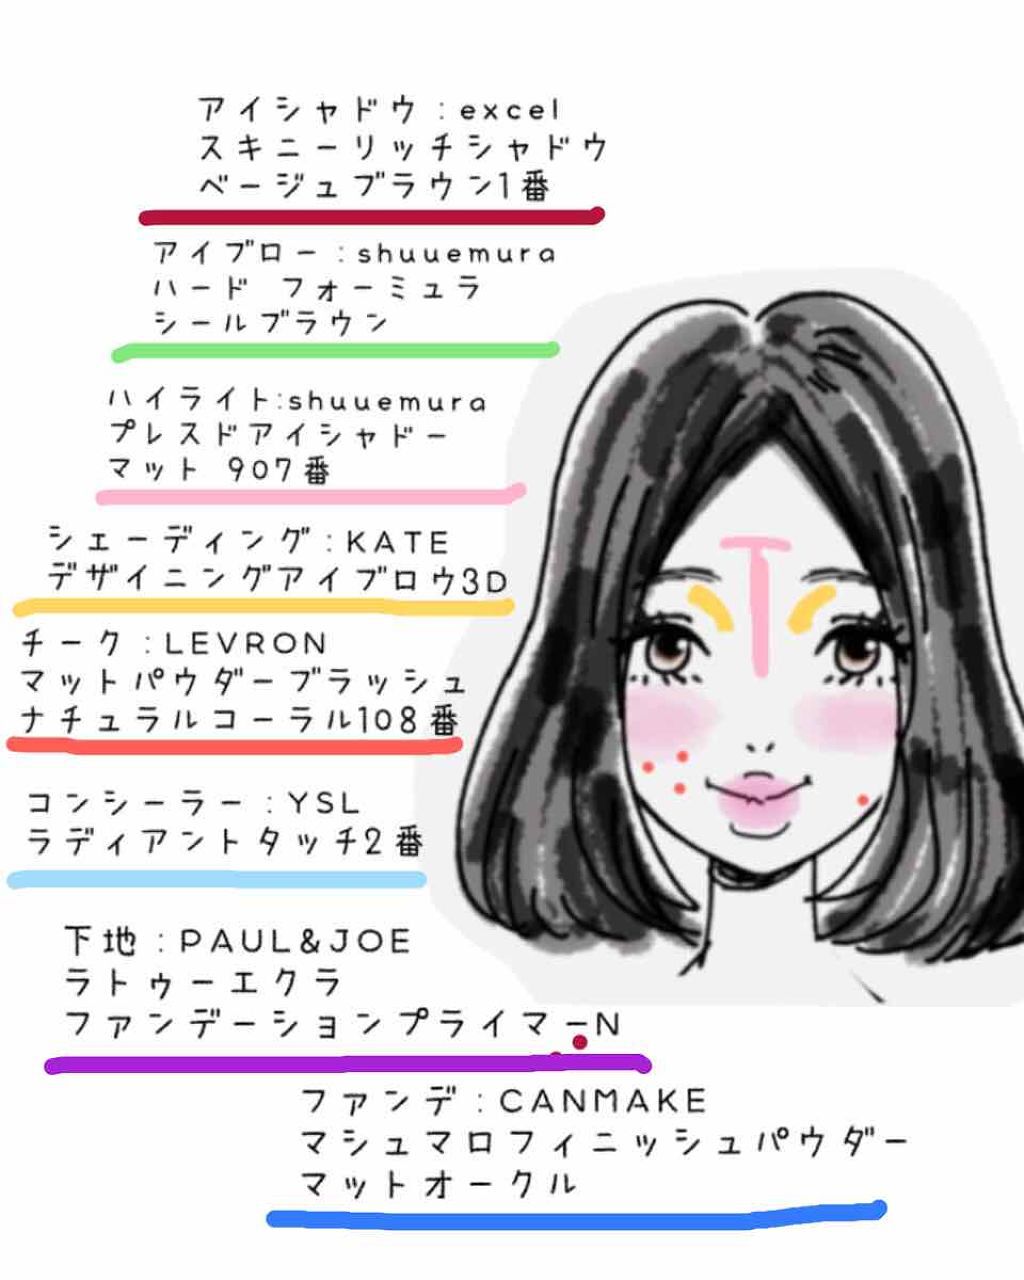 アイシャドウ:excel
スキニーリッチシャドウ
ベージュブラウン1番
アイブロー:shuuemura
ハード フォーミュラ
シールブラウン
ハイライト:shuuemura
プレスドアイシャドー
マット 907番
シェーディング:KATE
デザイニングアイブロウ3D
チーク:LEVRON
マットパウダーブラッシュ
ナチュラルコーラル108番
コンシーラー:YSL
ラディアントタッチ2番
下地:PAUL&JOE
ラトゥーエクラ
ファンデーションプライマーN
ファンデ:CANMAKE
マシュマロフィニッシュパウダー
マットオークル